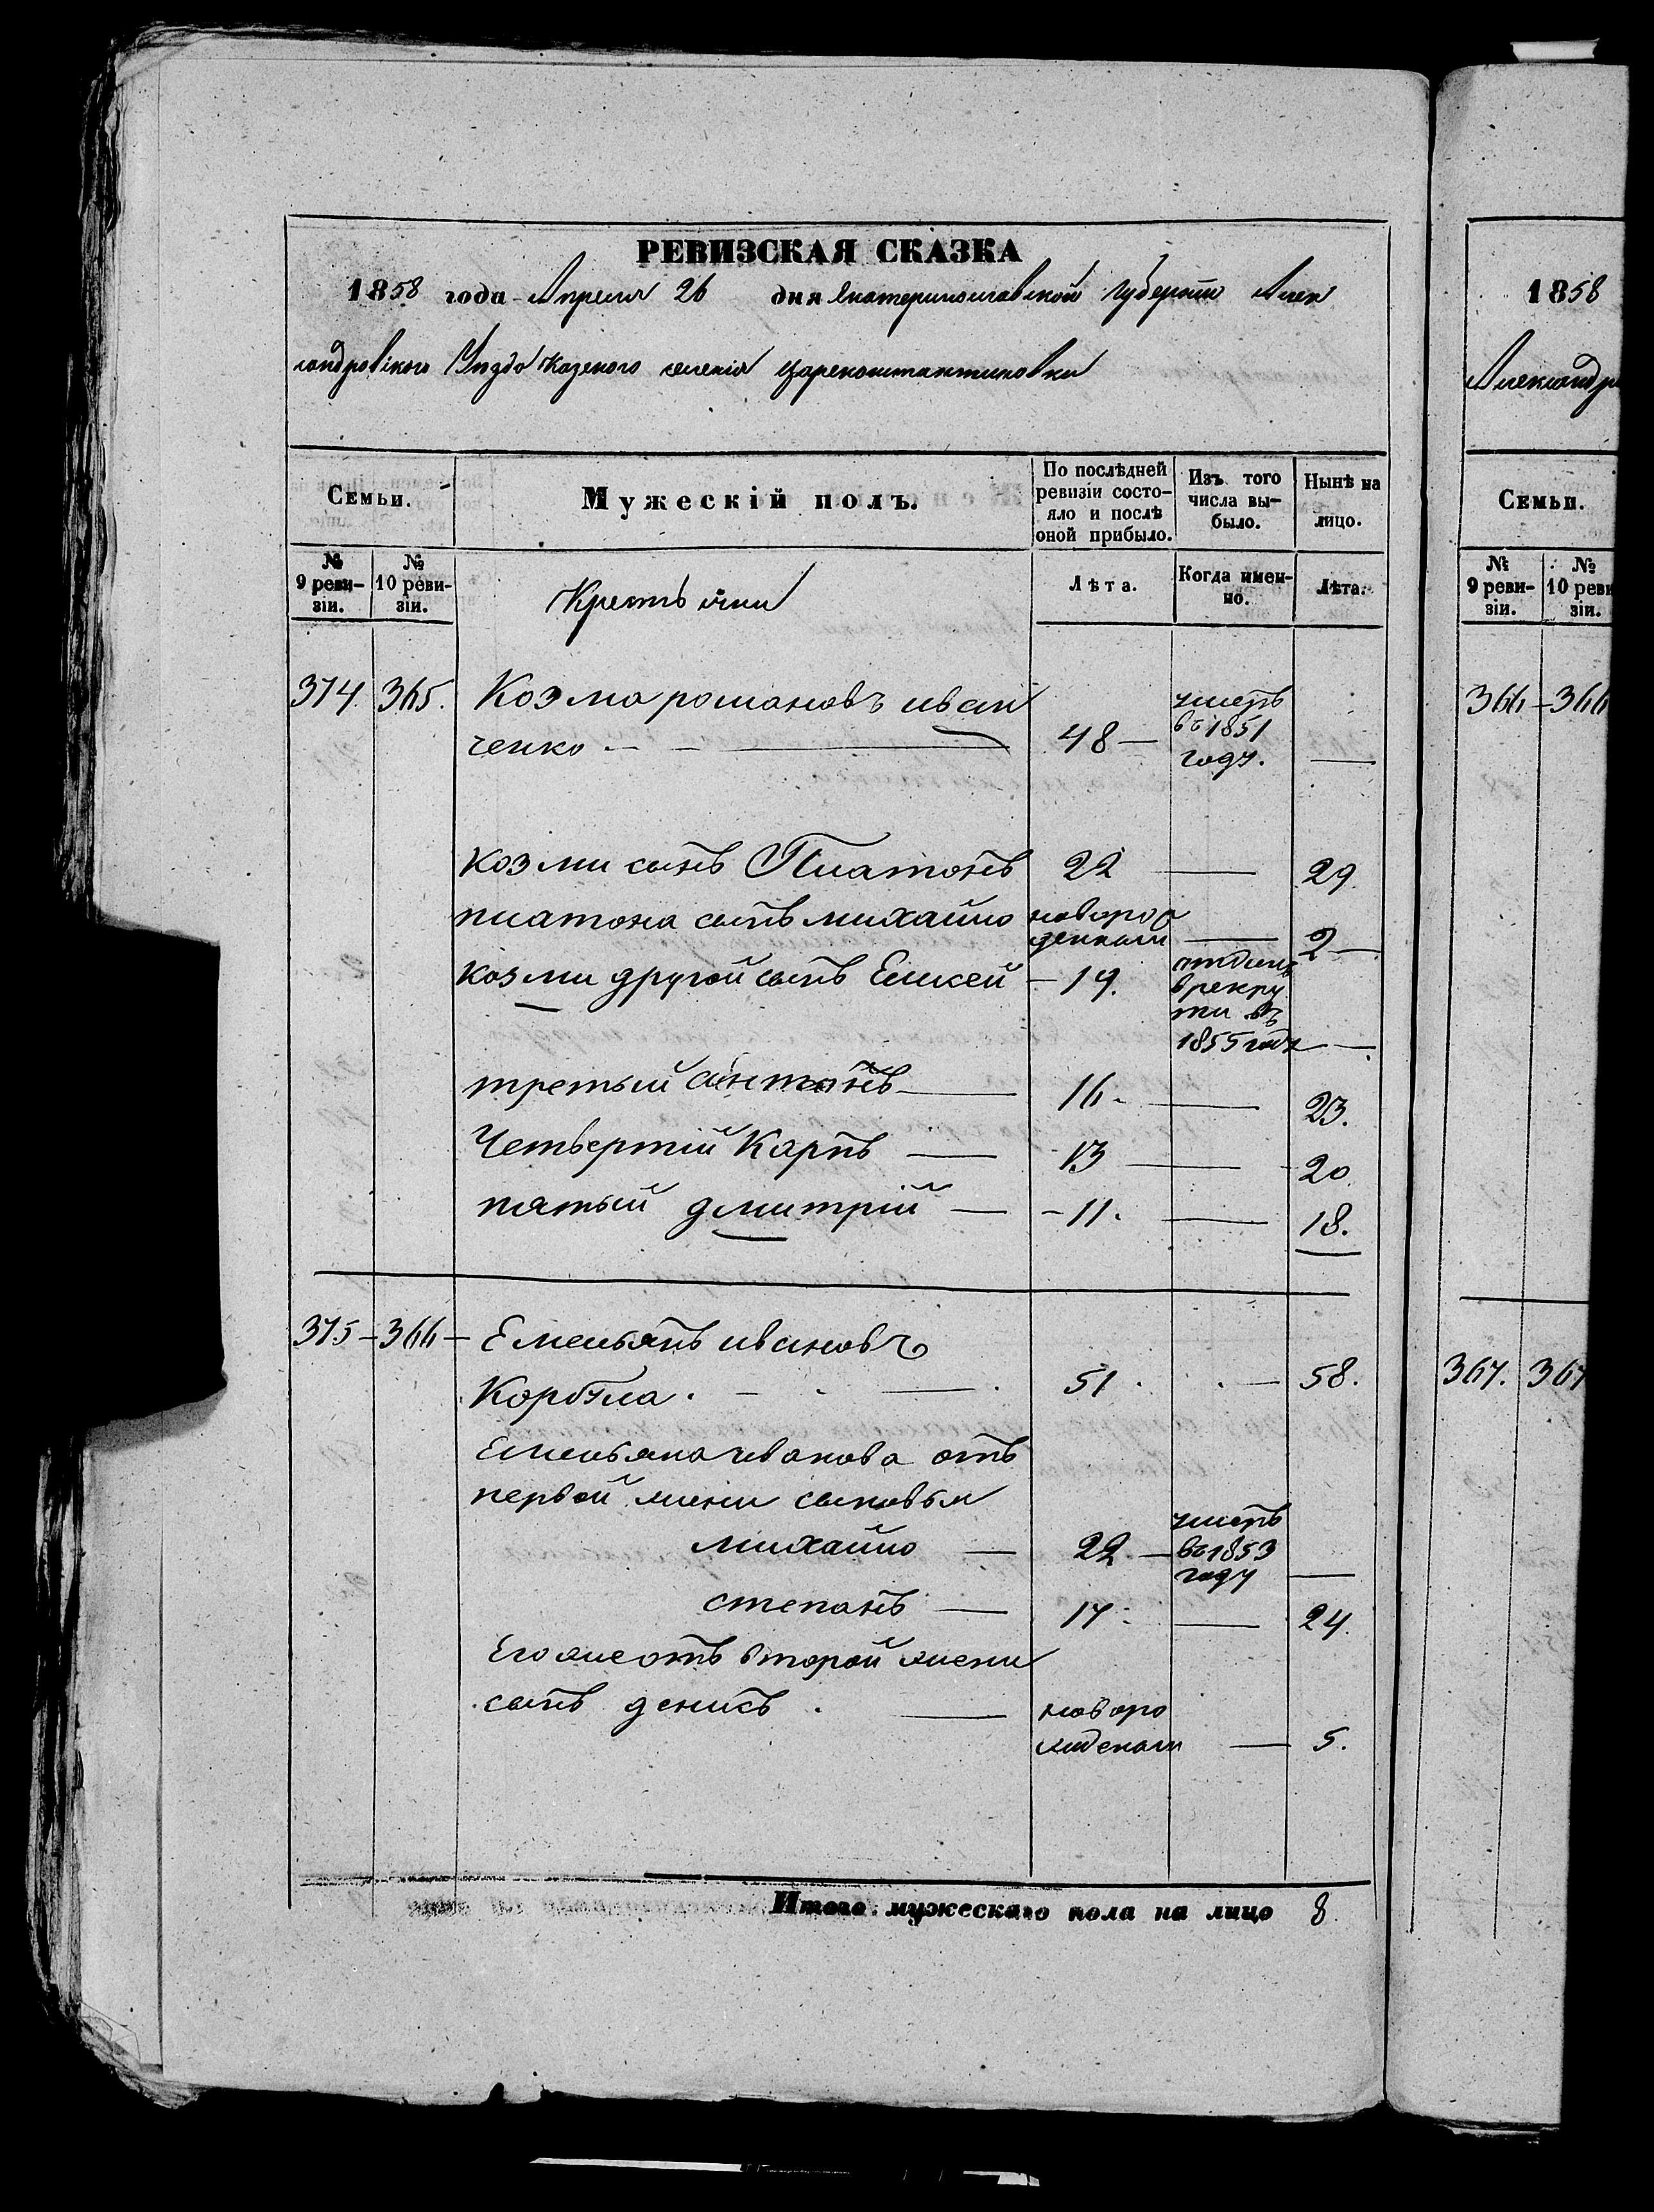 РЕВИЗСКАЯ СКАЗКА
1858 года Апреля 26 дня Екатеринославской Губернии Алек
сандровского Уезда Казеного селения Цареконстантиновки
Семьи. Мужескій полъ. По послѣдней ревизіи состо- яло и послѣ оной прибыло. Изъ того числа вы- было. Нынѣ на лицо.
№ 9 реви- зіи. № 10 реви- зіи. Крестьяни Лѣта. Когда имен- но. Лѣта.
374. 365. Козма романовъ иван
ченко 48 умеръ въ 1851 году.
козми сынъ Платонъ 22 29.
платона сынъ михайло новорож денный 2
козми другой сынъ Еликей 19. отданъ в рекру ти въ 1855 году
третый антонъ 16. 23.
Четвертій Карпъ 13 20.
пятый дмитрій 11. 18.
375 366 Емельянъ ивановъ
Корбула. 51. 58.
Емельяна иванова отъ
первой жени сыновья
михайло 22 умеръ въ 1853 году
степанъ 17. 24.
Его же отъ второй жени
сынъ денисъ. новоро жденый 5.
Итого мужескаго пола на лицо 8.
1858
Александр
Семьи.
№ 9 реви- зіи. № 10 реви зіи.
366 366
367. 367